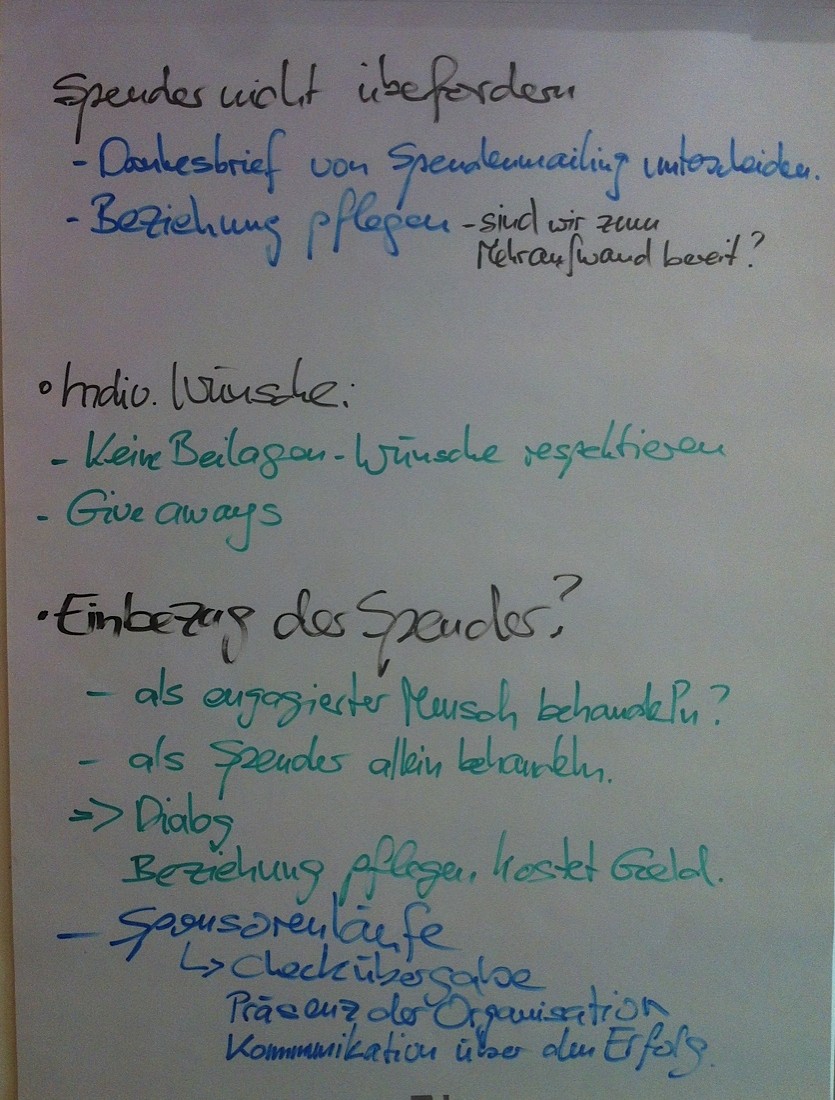 Spender nicht überfordern
- Dankesbrief von Spendenmailing unterscheiden.
- Beziehung pflegen - sind wir zum
Mehraufwand bereit?
• Indiv. Wünsche:
- Keine Beilagen - Wünsche respektieren
- Give aways
• Einbezug der Spender?
- als engagierter Mensch behandeln?
- als Spender allein behandeln.
=> Dialog
Beziehung pflegen, kostet Geld.
- Sponsorenläufe
↳ Checkübergabe
Präsenz der Organisation
Kommunikation über den Erfolg.